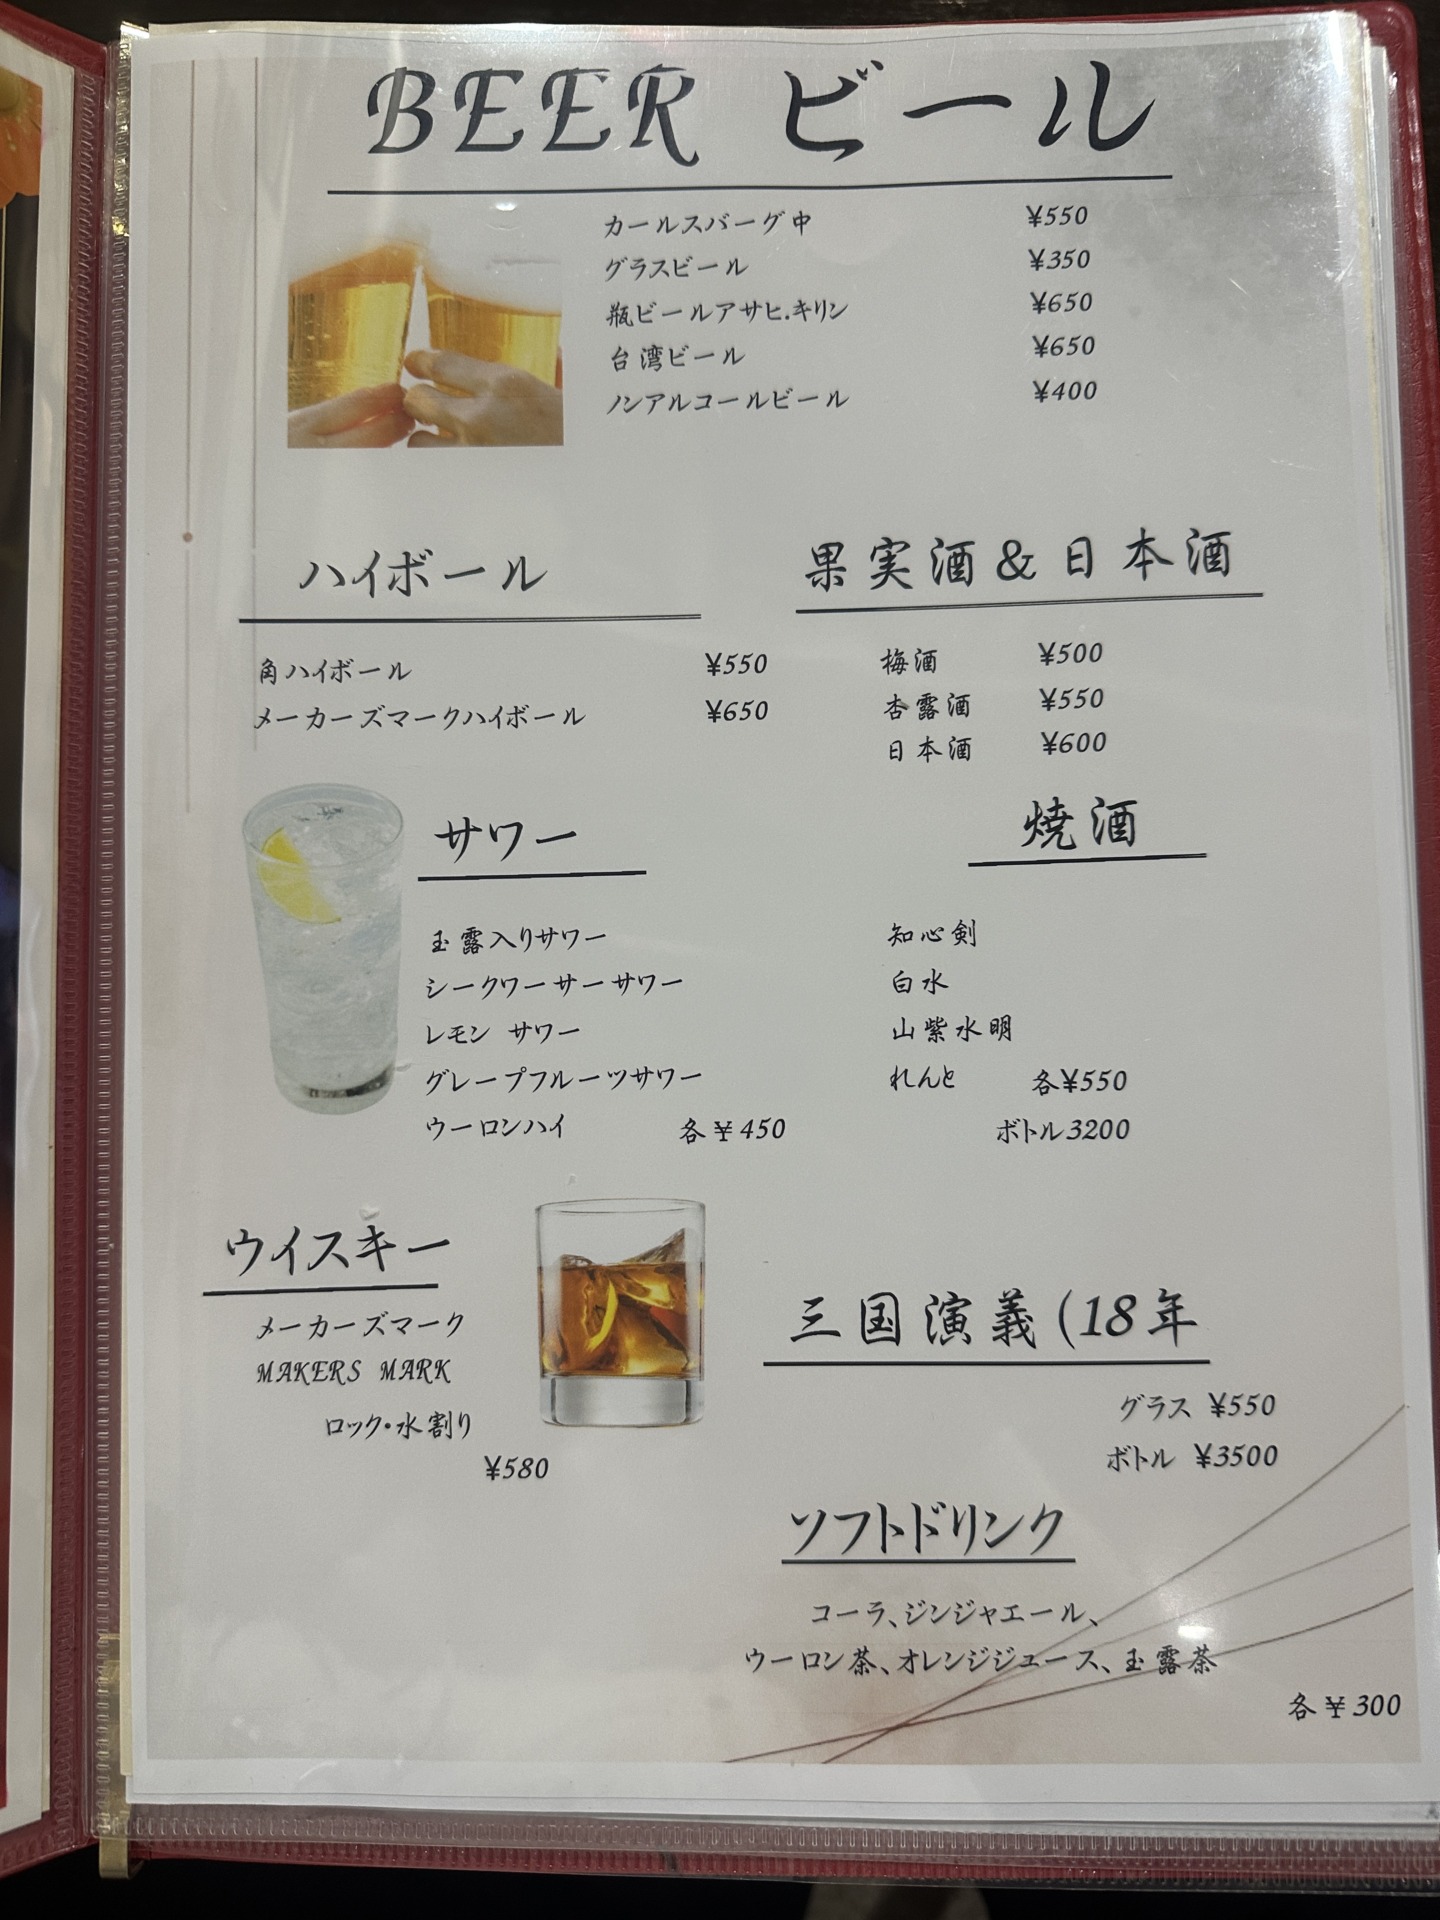 BEER ビール
カールスバーグ中 ¥550
グラスビール ¥350
瓶ビールアサヒ.キリン ¥650
台湾ビール ¥650
ノンアルコールビール ¥400
ハイボール
角ハイボール ¥550
メーカーズマークハイボール ¥650
果実酒&日本酒
梅酒 ¥500
杏露酒 ¥550
日本酒 ¥600
サワー
玉露入りサワー
シークワーサーサワー
レモン サワー
グレープフルーツサワー
ウーロンハイ 各¥450
焼酒
知心剣
白水
山紫水明
れんと 各¥550
ボトル3200
ウイスキー
メーカーズマーク
MAKERS MARK
ロック・水割り
¥580
三国演義(18年
グラス ¥550
ボトル ¥3500
ソフトドリンク
コーラ、ジンジャエール、
ウーロン茶、オレンジジュース、玉露茶
各¥300